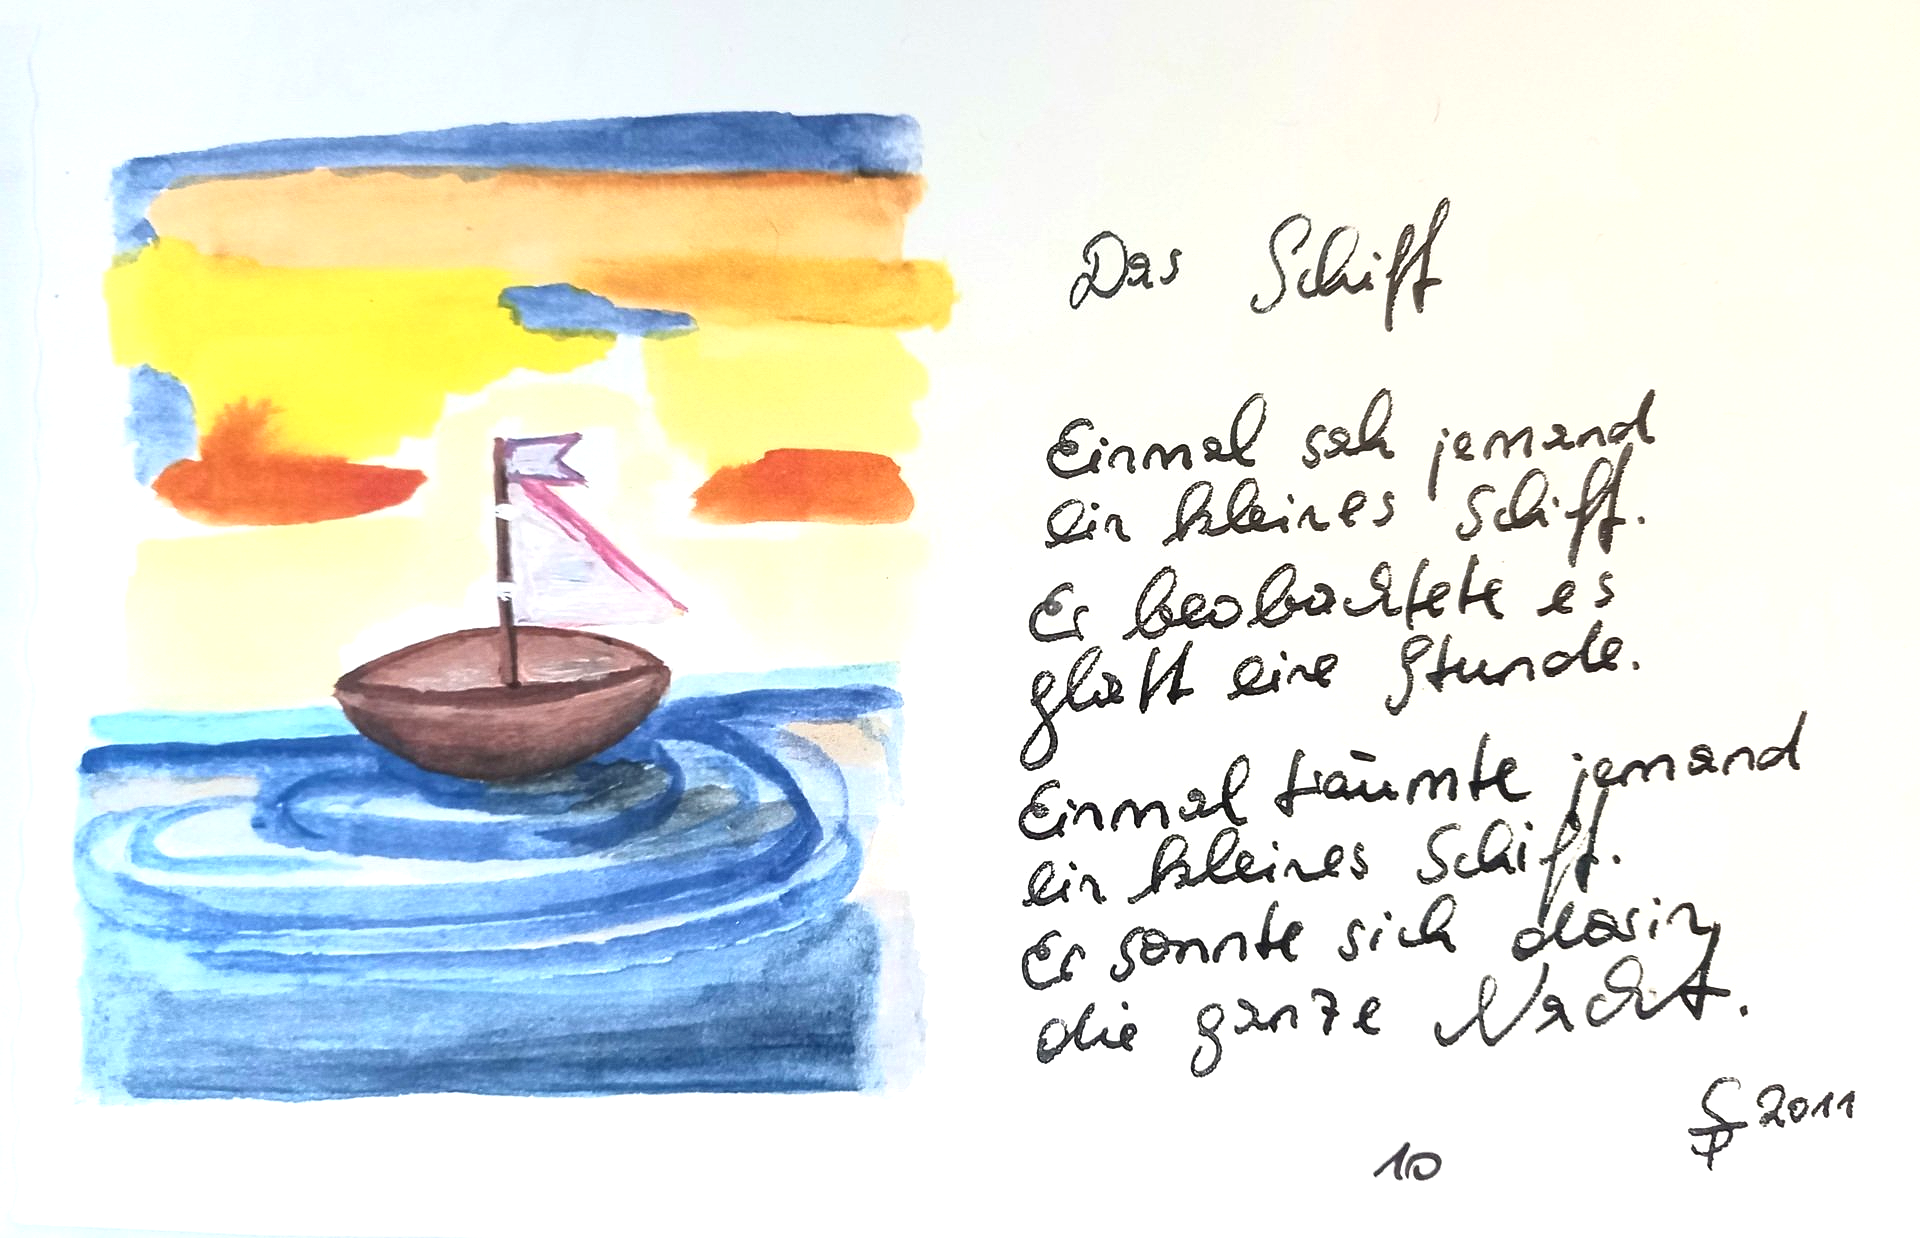 Das Schiff
Einmal sah jemand
ein kleines Schiff.
Er beobachtete es
glatt eine Stunde.
Einmal träumte jemand
ein kleines Schiff.
Er sonnte sich darin
die ganze Nacht.
2011
10